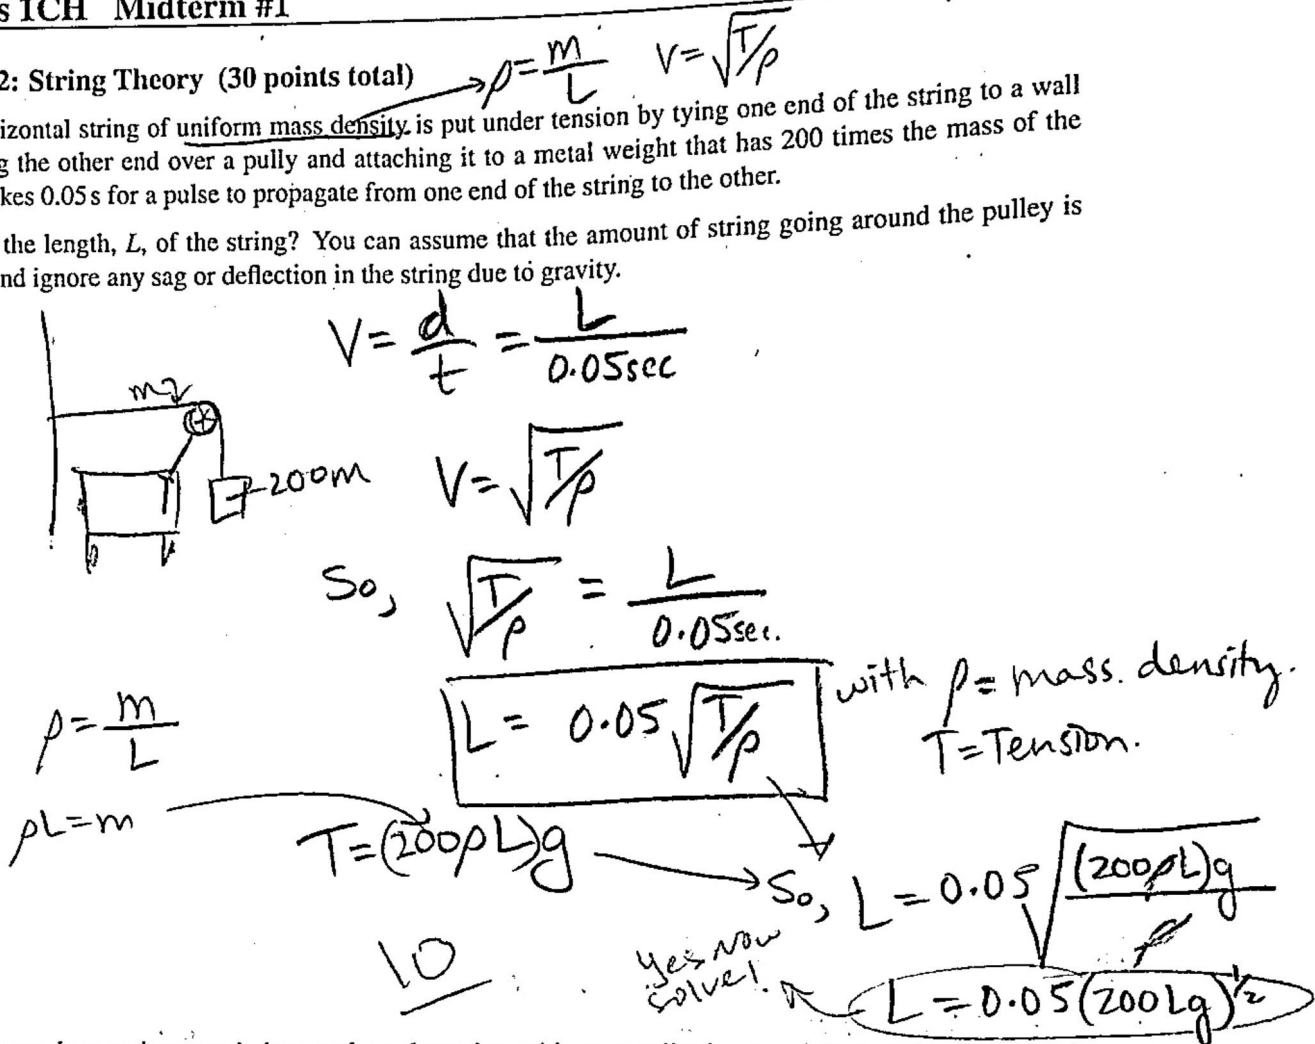 s 1CH Midterm #1
2: String Theory (30 points total)
ρ = m/L
V = √T/ρ
izontal string of uniform mass density is put under tension by tying one end of the string to a wall
g the other end over a pully and attaching it to a metal weight that has 200 times the mass of the
kes 0.05 s for a pulse to propagate from one end of the string to the other.
the length, L, of the string? You can assume that the amount of string going around the pulley is
nd ignore any sag or deflection in the string due to gravity.
V = d/t = L/0.05sec
m
200m
V = √T/ρ
So, √T/ρ = L/0.05sec.
L = 0.05 √T/ρ
with ρ = mass. density.
T = Tension.
ρ = m/L
ρL = m
T = (200ρL)g
So, L = 0.05 √(200ρL)g/ρ
10
Yes Now
solve!
L = 0.05(200Lg)^1/2